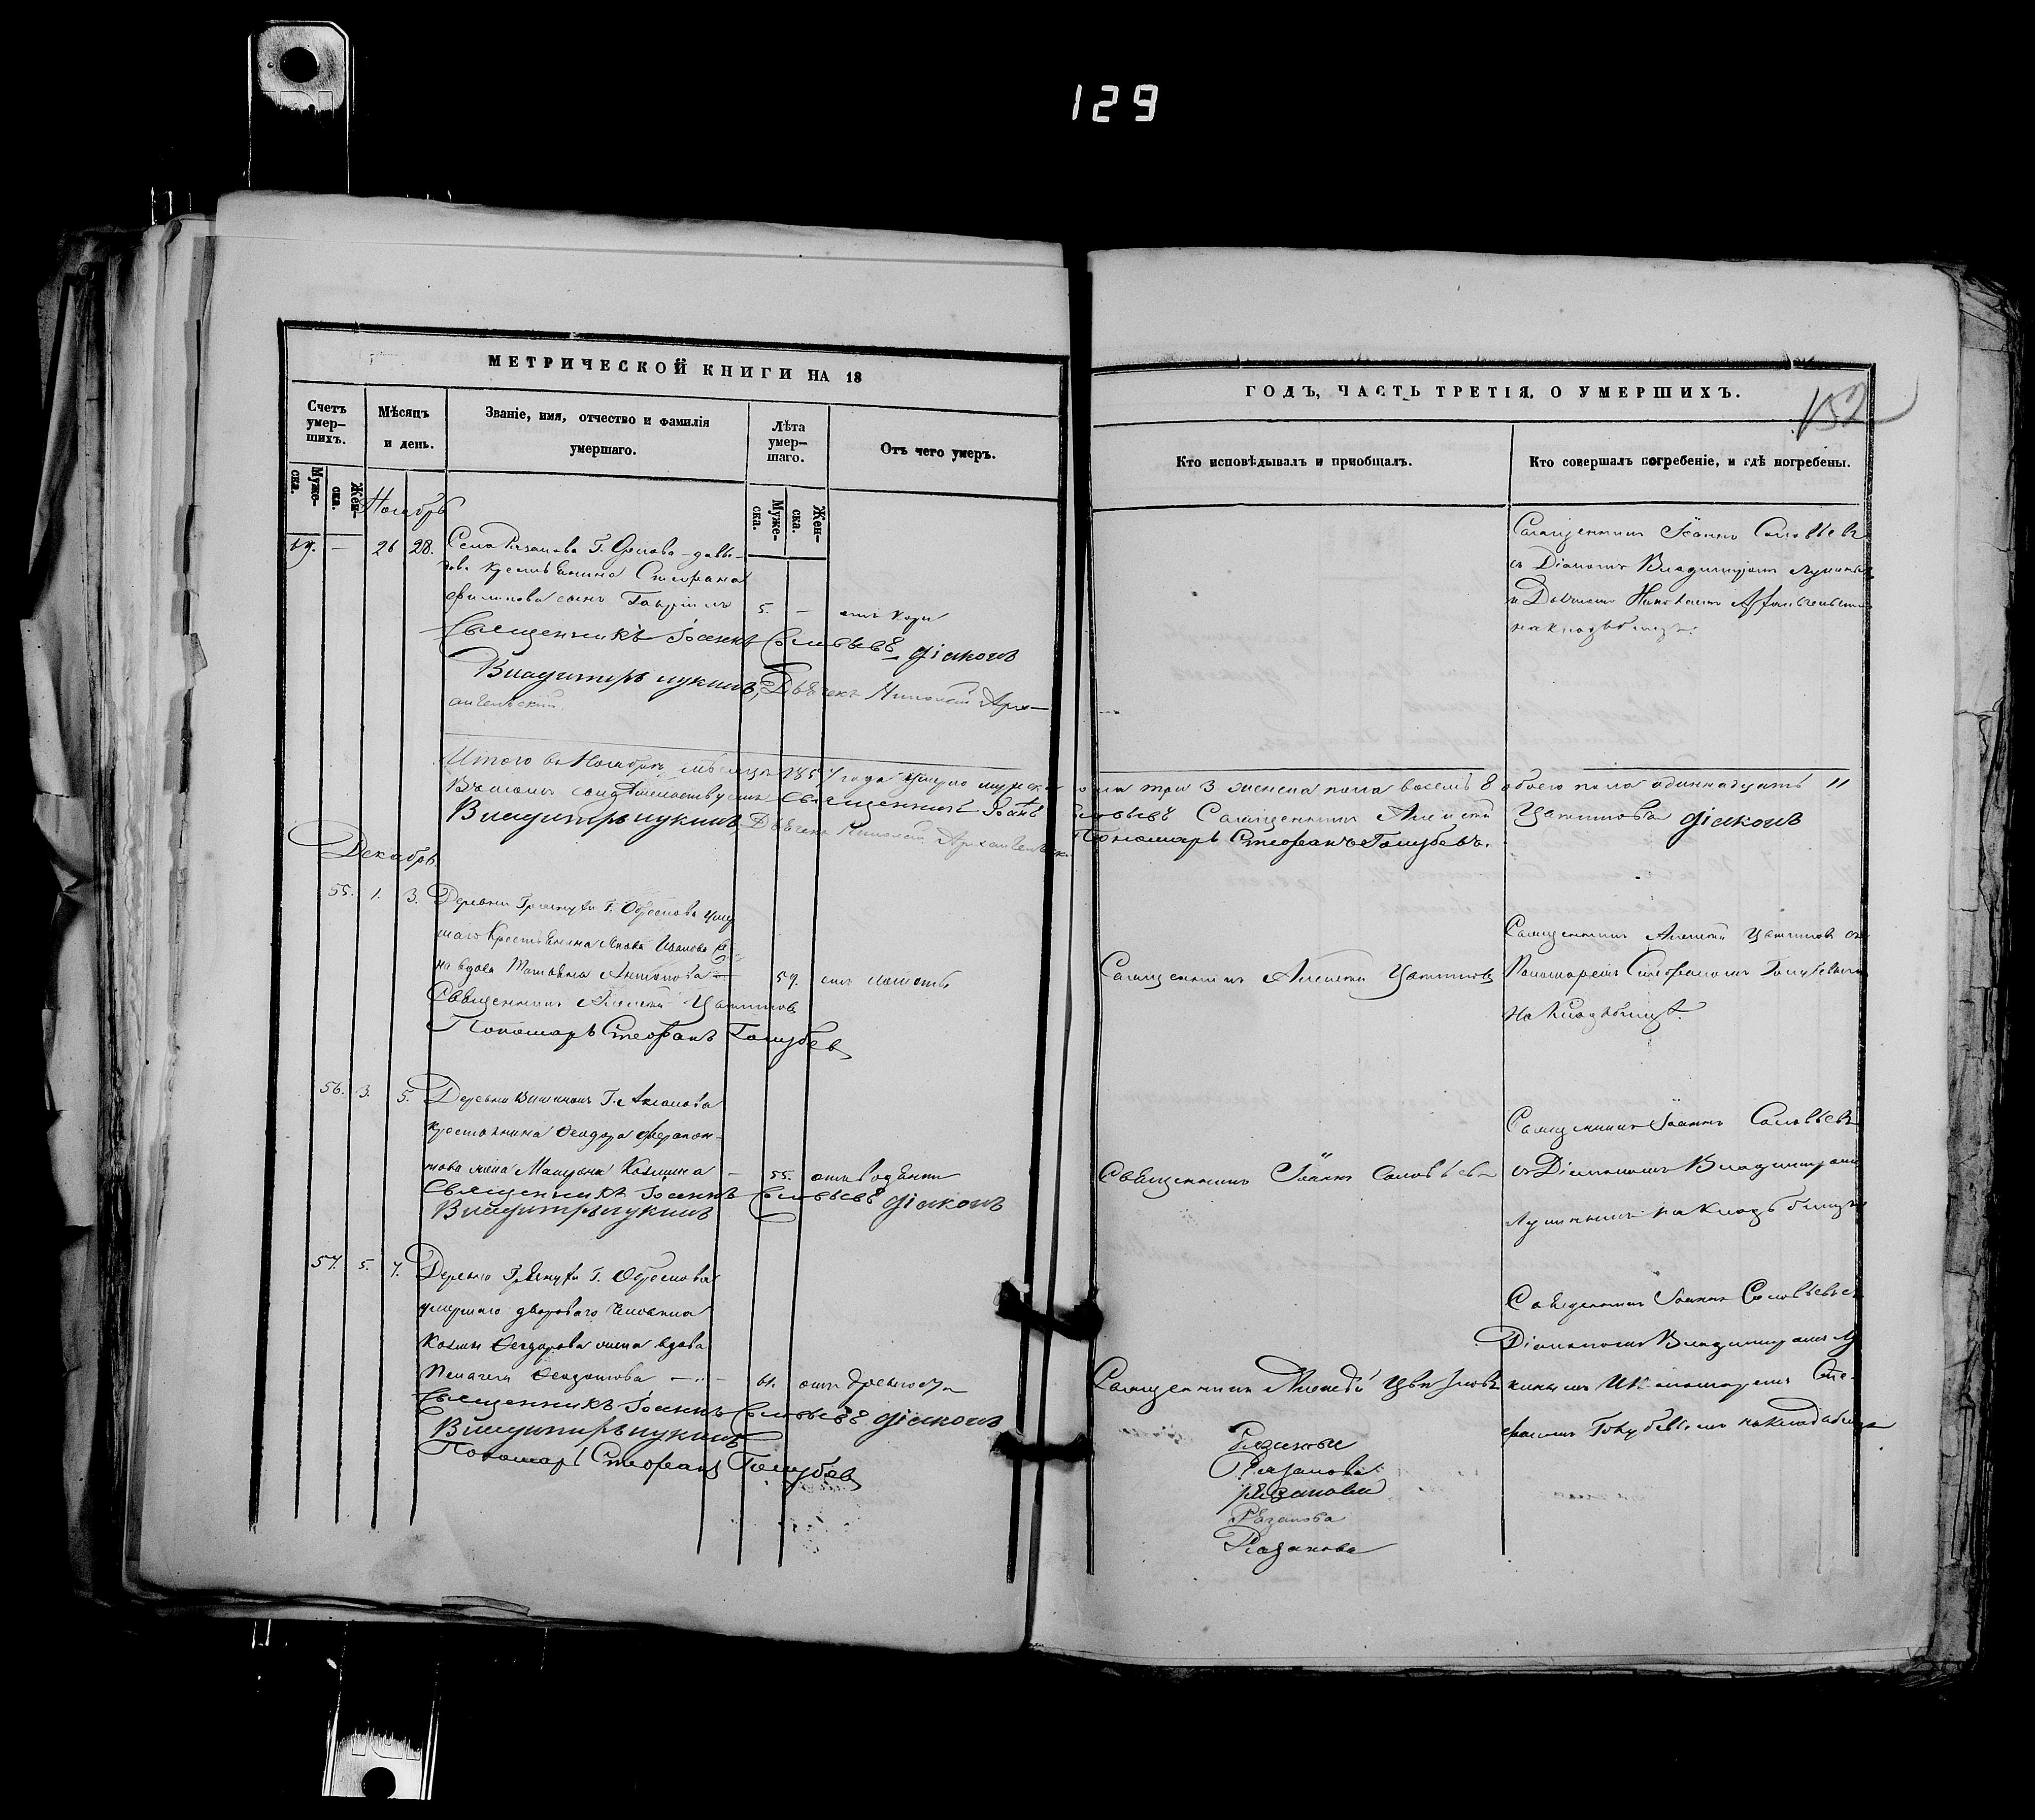 129
МЕТРИЧЕСКОЙ КНИГИ НА 18
Счетъ умер-
шихъ.
Мѣсяцъ
и день.
Званіе, имя, отчество и фамилія
умершаго.
Лѣта
умер-
шаго.
Отъ чего умеръ.
Муже-
ска.
Жен-
ска.
Муже-
ска.
Жен-
ска.
Ноябрь
— 26 28. Села Рязанова Г. Орлова-Давы-
дова крестьянина Стефана
Филипова сынъ Гавріилъ 5. — отъ кори
Священникъ Іоаннъ Соловьевъ діаконъ
Владимиръ Лукинъ, Дьячекъ Николай Арх-
ангельскій.
Итого въ Ноябрѣ мѣсяцѣ 1857 года умерло мужска
Въ томъ свидѣтельствуемъ Священникъ Іоаннъ
Владимиръ Лукинъ Дьячекъ Николай Архангельск
Декабрь.
55. 1. 3. Деревни Г. Обрескова умер
шаго Крестьянина Иванова
вдова Татьяна Антонова — 59.
Священникъ Алексѣй Цвѣтковъ
Пономарь Стефанъ Голубев
56. 3. 5. Деревни Г. Аксакова
крестьянина Ѳеодора Ферапон-
това жена Козмина — 55. отъ водянки
Священникъ Іоаннъ Соловьевъ діаконъ
Владимиръ Лукинъ
57. 5. 7. Деревни Г. Обрескова
умершаго двороваго человека
Козмы Ѳеодорова жена вдова
Пелагея — 61. отъ древности
Священникъ Іоаннъ Соловьевъ діаконъ
Владимиръ Лукинъ
Пономарь Стефанъ Голубев
ГОДЪ, ЧАСТЬ ТРЕТІЯ, О УМЕРШИХЪ.
152
Кто исповѣдывалъ и пріобщалъ.
Кто совершалъ погребеніе, и гдѣ погребены.
Священникъ Іоаннъ Соловьевъ
съ Діакономъ Владимиромъ Лукинымъ
и Дьячкомъ Николаемъ Архангельскимъ
на кладбищѣ.
пола три 3 женска пола восемь 8 обоего пола одиннадцать 11
Соловьевъ Священникъ Алексѣй Цвѣтковъ діаконъ
Пономарь Стефанъ Голубевъ.
Священникъ Алексѣй Цвѣтковъ
Священникъ Алексѣй Цвѣтковъ съ
Пономаремъ Стефаномъ Голубевымъ
на кладбищѣ.
Священникъ Іоаннъ Соловьевъ
Священникъ Іоаннъ Соловьевъ
съ Діакономъ Владимиромъ
Лукинымъ на кладбищѣ
Священникъ Алексѣй Цвѣтковъ
Священникъ Іоаннъ Соловьевъ съ
Діакономъ Владимиромъ Лу
кинымъ и Пономаремъ Сте-
фаномъ Голубевымъ на кладбищѣ
Рязанова
Рязанова
Рязанова
Рязанова